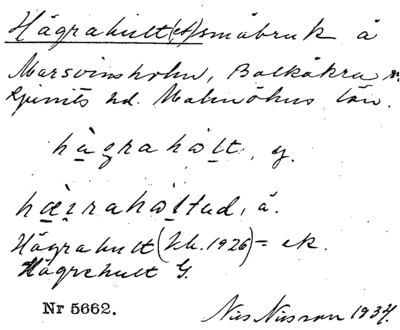 Hägrahult(et) småbruk å
Marsvinsholm, Balkåkra sn.
Ljunits hd. Malmöhus län.
hàgrahωlt, y.
hæ̀ɪrahωltud, ä.
Hägrahult (Jb. 1926) = ek.
Hägrehult G.
Nr 5662.
Nils Nilsson 1934.